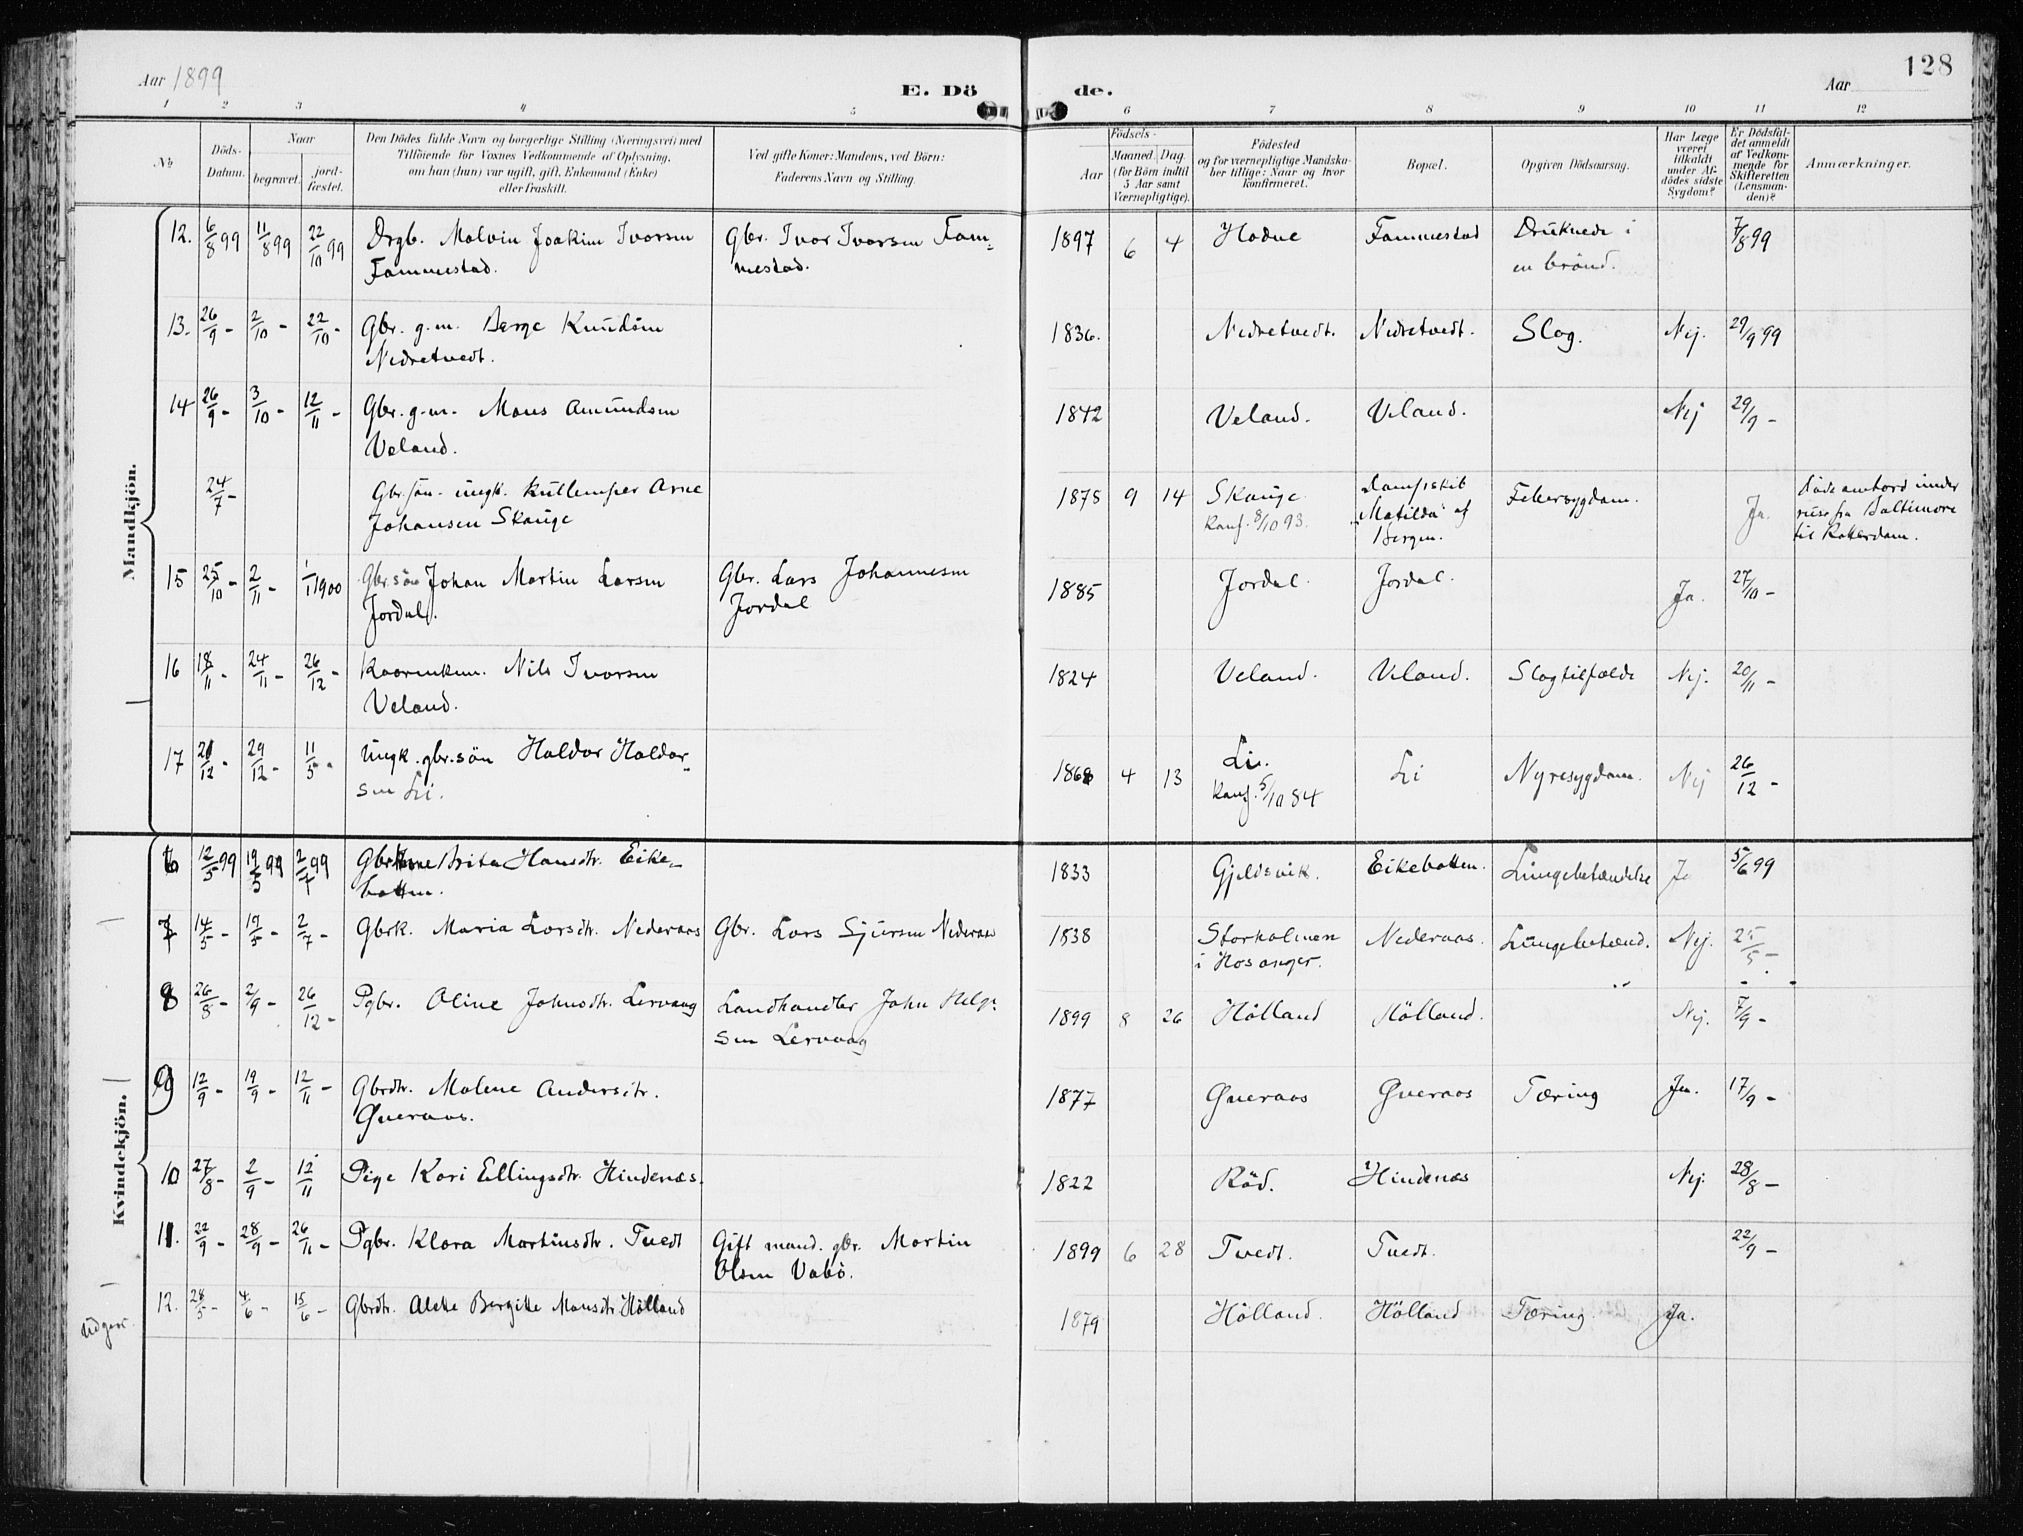 128
Aar 1899
E. Dö de.
Aar
1 2 3 4 5 6 7 8 9 10 11 12
No
Döds-Datum.
Naar
begravet.
jord-fæstet.
Den Dödes fulde Navn og borgerlige Stilling (Næringsvei) med
Tilföiende for Voxnes Vedkommende af Oplysning,
om han (hun) var ugift, gift, Enkemand (Enke)
eller fraskilt.
Ved gifte Koner: Mandens, ved Börn:
Faderens Navn og Stilling.
Födsels-
Aar
Maaned. Dag.
(for Börn indtil
5 Aar samt
Værnepligtige).
Födested
og for værnepligtige Mandska-
ber tillige: Naar og hvor
konfirmeret.
Bopæl.
Opgiven Dödsaarsag.
Har Læge
været
tilkaldt
under Af-
dödes sidste
Sygdom?
Er Dödsfal-
det anmeldt
af Vedkom-
mende for
Skifteretten
(Lensman-
den)?
Anmærkninger.
Mandkjön.
12. 6/8 99 11/8 99 22/10 99 Drgb. Malvin Joakim Ivarsen Gbr. Ivar Ivarsen Fam- 1897 6 4 Hodne Fammestad Druknede i 7/8 99
Fammestad. mestad. en brönd.
13. 26/9 - 2/10 - 22/10 - Gbr. g.m. Berge Knudsen 1836. Nedretvedt. Nedretvedt. Slag. Nej. 29/9 99
Nedretvedt.
14 26/9 - 3/10 - 12/11 - Gbr. g.m. Mons Amundsen 1842 Veland. Veland. Nej 29/9 -
Veland.
24/7 - Gbr.sön ungk. Kullemper Arne 1878 9 14 Skauge Dampskib Febersygdom. Ja. döde ombord under
Johansen Skauge Konf. 8/10 93. "Matilda" af reise fra Baltimore
Bergen. til Rotterdam.
15 25/10 - 2/11 - 1/1 1900 Gbr.sön Johan Martin Larsen Gbr. Lars Johannesen 1885 Jordal. Jordal. Ja. 27/10 -
Jordal. Jordal
16 18/11 - 24/11 - 26/12 - Kaarenkem. Nils Ivarsen 1824 Veland. Veland. Slagtilfælde Nej. 20/11 -
Veland.
17 21/12 - 29/12 - 11/5 - Ungk. gbr.sön Haldor Haldor- 1868 4 13 Li. Li Nyresygdom. Nej 26/12 -
sen Li. Konf. 5/10 84
Kvindekjön.
6 12/5 99 19/5 99 2/7 99 Gbrkone Brita Hansdtr. Eike- 1833 Gjeldsvik. Eikebotten. Lungebetændelse Ja 5/6 99
botten.
7 14/5 - 19/5 - 2/7 - Gbrk. Maria Larsdtr. Nederaas Gbr. Lars Sjursen Nederaas 1838 Storholmen Nederaas. Lungebetænd. Nej. 25/5 -
i Hosanger.
8 26/8 - 2/9 - 26/12 - Pgbr. Oline Johnsdtr. Lervaag Landhandler John Helge- 1899 8 26 Hölland Hölland. Nej. 7/9 -
sen Lervaag
9 12/9 - 19/9 - 12/11 - Gbrdtr. Malene Andersdtr. 1877 Gveraas Gveraas Tæring Ja. 17/9 -
Gveraas.
10 27/8 - 2/9 - 12/11 Pige Kari Ellingsdtr. Hindenæs. 1822 Röd. Hindenæs Nej. 28/8 -
11. 22/9 - 28/9 - 26/11 - Pgbr. Klara Martinsdtr. Tvedt Gift mand. gbr. Martin 1899 6 28 Tvedt. Tvedt. 22/9 -
Olsen Vabö.
12. 28/5 - 4/6 - 15/6 - Gbrdtr. Alette Bergitte Monsdtr. Hölland 1879 Hölland. Hölland Tæring. Ja.